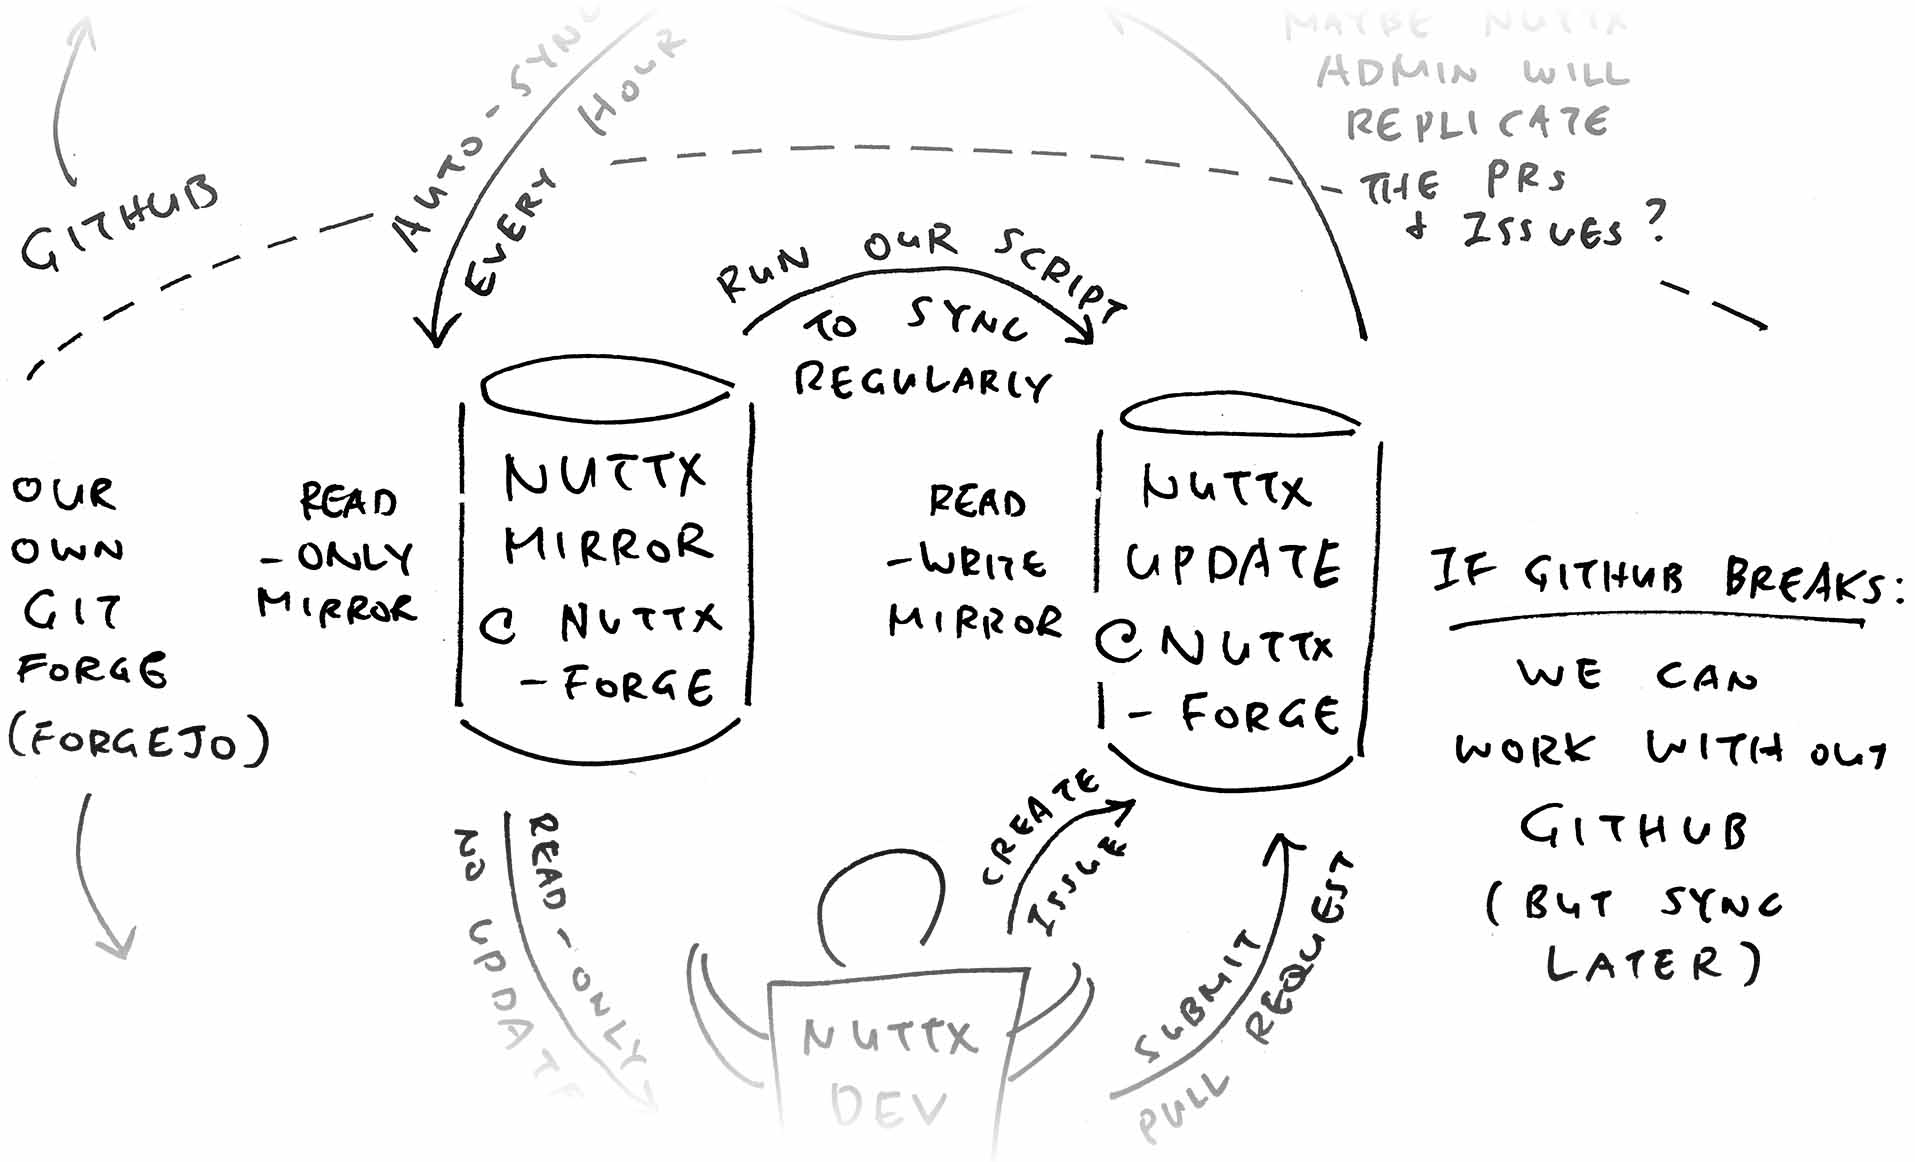 MAYBE NUTTX
ADMIN WILL
REPLICATE
THE PRS
+ ISSUES?
GITHUB
AUTO-SYNC
EVERY HOUR
RUN OUR SCRIPT
TO SYNC
REGULARLY
OUR
OWN
GIT
FORGE
(FORGEJO)
READ
-ONLY
MIRROR
NUTTX
MIRROR
@ NUTTX
-FORGE
READ
-WRITE
MIRROR
NUTTX
UPDATE
@ NUTTX
-FORGE
IF GITHUB BREAKS:
WE CAN
WORK WITHOUT
GITHUB
(BUT SYNC
LATER)
READ-ONLY
NO UPDATE
CREATE
ISSUE
SUBMIT
PULL REQUEST
NUTTX
DEV